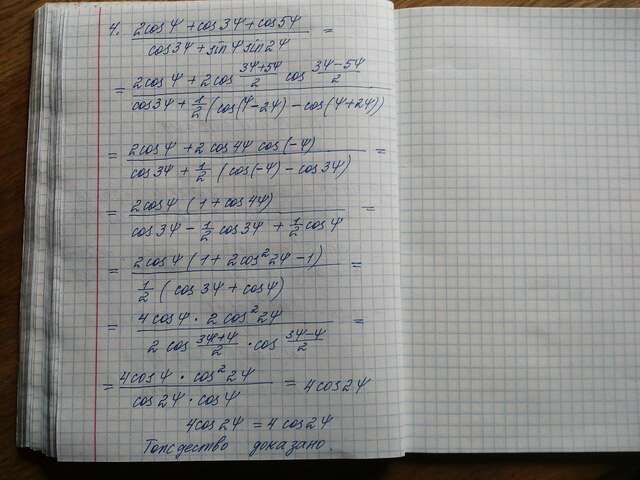 4. (2cosφ + cos3φ + cos5φ)/(cos3φ + sinφ sin2φ) =
= (2cosφ + 2cos (3φ+5φ)/2 cos (3φ-5φ)/2)/(cos3φ + 1/2 (cos(φ-2φ) - cos(φ+2φ)))
= (2cosφ + 2cos4φ cos(-φ))/(cos3φ + 1/2 (cos(-φ) - cos3φ)) =
= (2cosφ (1 + cos4φ))/(cos3φ - 1/2 cos3φ + 1/2 cosφ) =
= (2cosφ (1 + 2cos²2φ - 1))/(1/2 (cos3φ + cosφ)) =
= (4cosφ · 2cos²2φ)/(2cos (3φ+φ)/2 · cos (3φ-φ)/2) =
= (4cosφ · cos²2φ)/(cos2φ · cosφ) = 4cos2φ
4cos2φ = 4cos2φ
Тождество доказано.